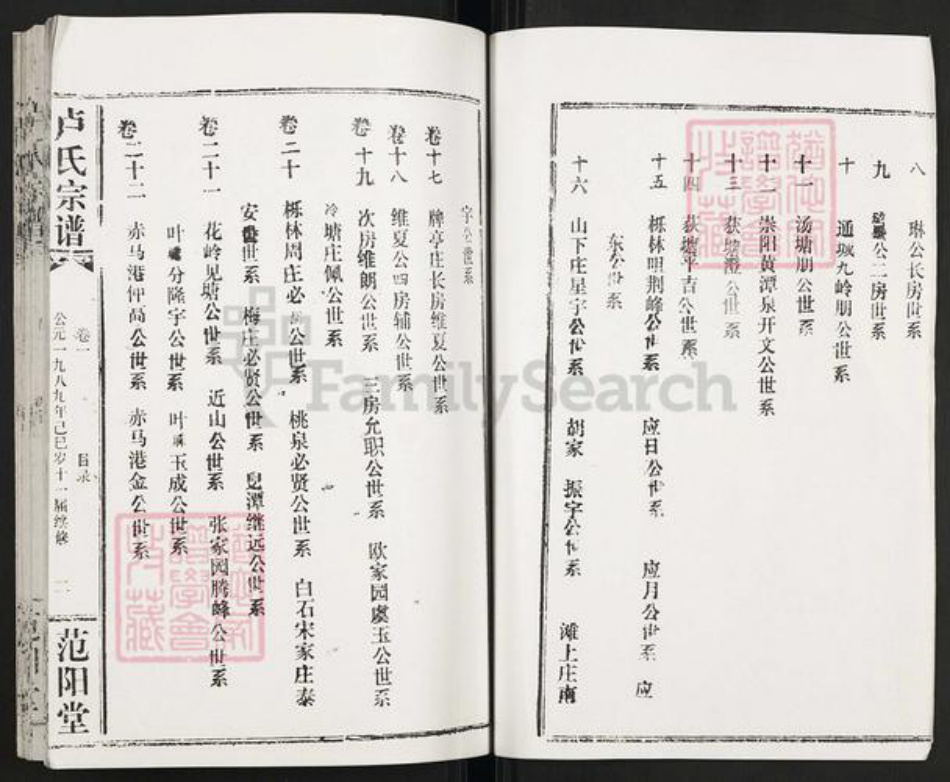 八 琳公长房世系
九 公二房世系
十 通城九岭朋公世系
十一 汤塘朋公世系
十二 崇阳黄潭泉开文公世系
十三 荻塘澄公世系
十四 荻塘平吉公世系
十五 栎林明荆峰公世系 应日公世系 应月公世系 应
东公世系
十六 山下庄星宇公世系 胡家 振宇公世系 滩上庄南
宇公世系
卷十七 牌亭庄长房维夏公世系
卷十八 维夏公四房辅公世系
卷十九 次房维朗公世系 三房允职公世系 欧家园虞玉公世系
冷塘庄佩公世系
卷二十 栎林周庄必公世系 桃泉必贤公世系 白石宋家庄泰
安世系 梅庄必贤公世系 潭继远公世系
卷二十一 花岭见塘公世系 近山公世系 张家园腾峰公世系
叶分隆宇公世系 叶玉成公世系
卷二十二 赤马港仲高公世系 赤马港金公世系
卢氏宗谱
卷一 目录 二
公元一九八九年己巳岁十一届续修
范阳堂
FamilySearch